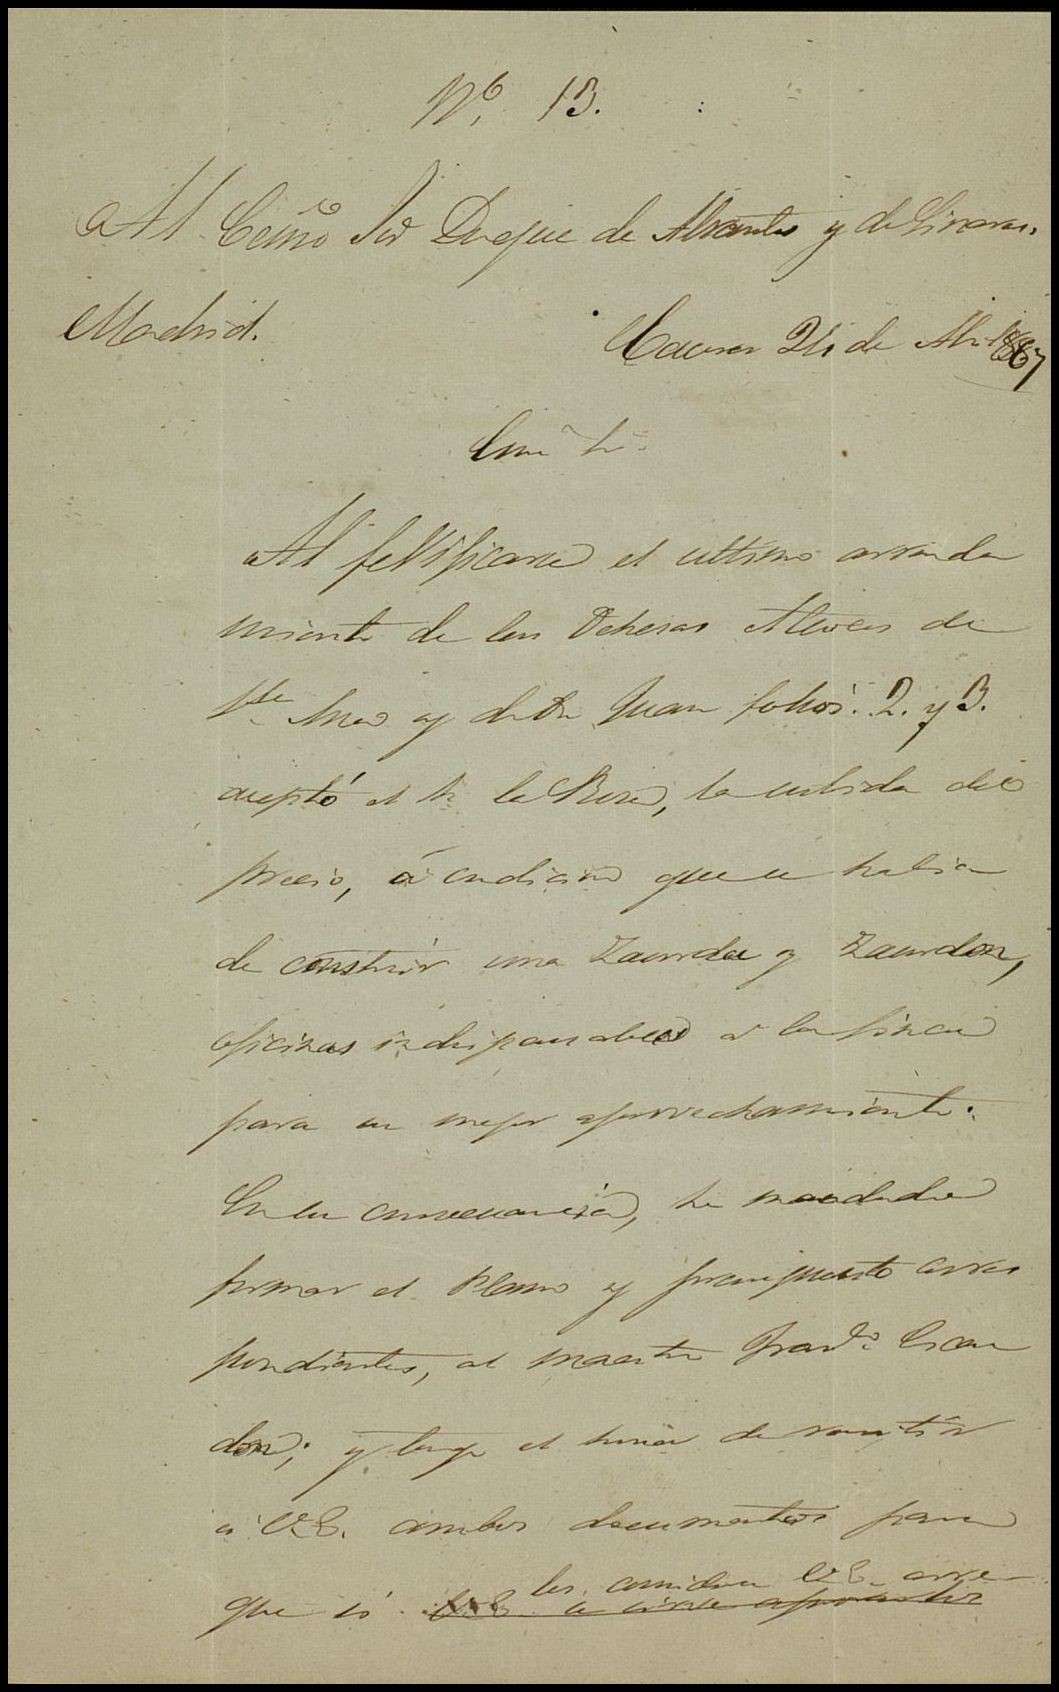 Nº. 13.
Al Cemo Sor Duque de Abrantes y de Linares.
Madrid.
Caceres 24 de Abril 1867
Emo Sr.
Al verificarse el ultimo arrenda
miento de las Dehesas Alcores de
Sta Ana y de Dn Juan folios 2. y 3.
aceptó el Sr la Riva, la subida del
precio, á condicion que se habia
de construir una Zaurda y Zaurdon,
oficinas indispensables á la finca
para su mejor aprovechamiento.
En su consecuencia, he mandado
formar el Plano y presupuesto corres
pondientes, al maestro Franco Escan
don; y tengo el honor de remitir
á V.E. ambos documentos para
que si les considera V.E. arre-